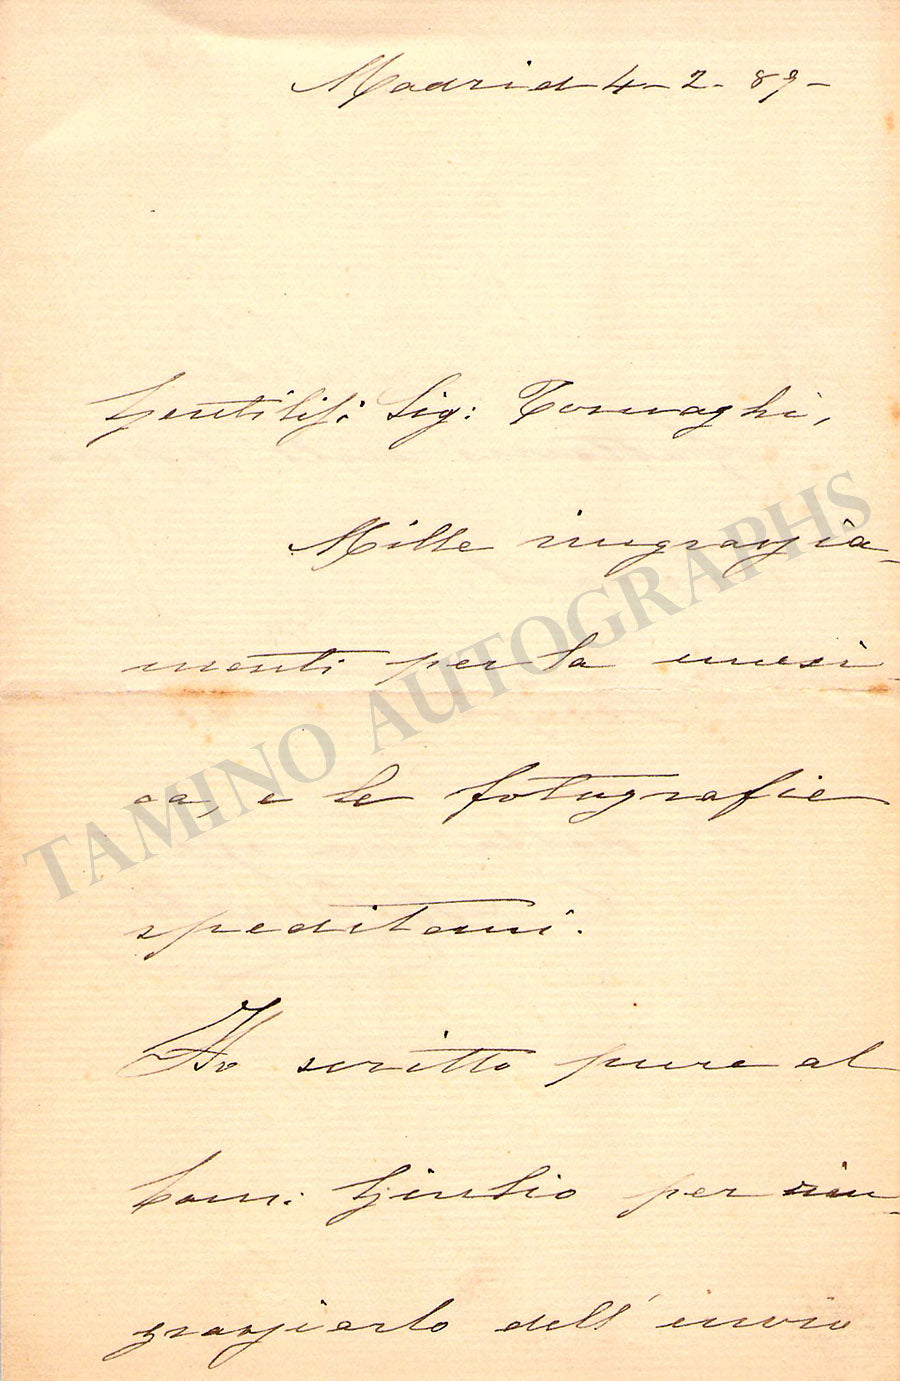 Madrid 4-2-89-
Gentiliss: Sig: Tornaghi,
Mille ringrazia-
menti per la musi-
ca, e le fotografie
speditemi.
Ho scritto pure al
Com: Giulio per rin-
graziarlo dell'invio
TAMINO AUTOGRAPHS